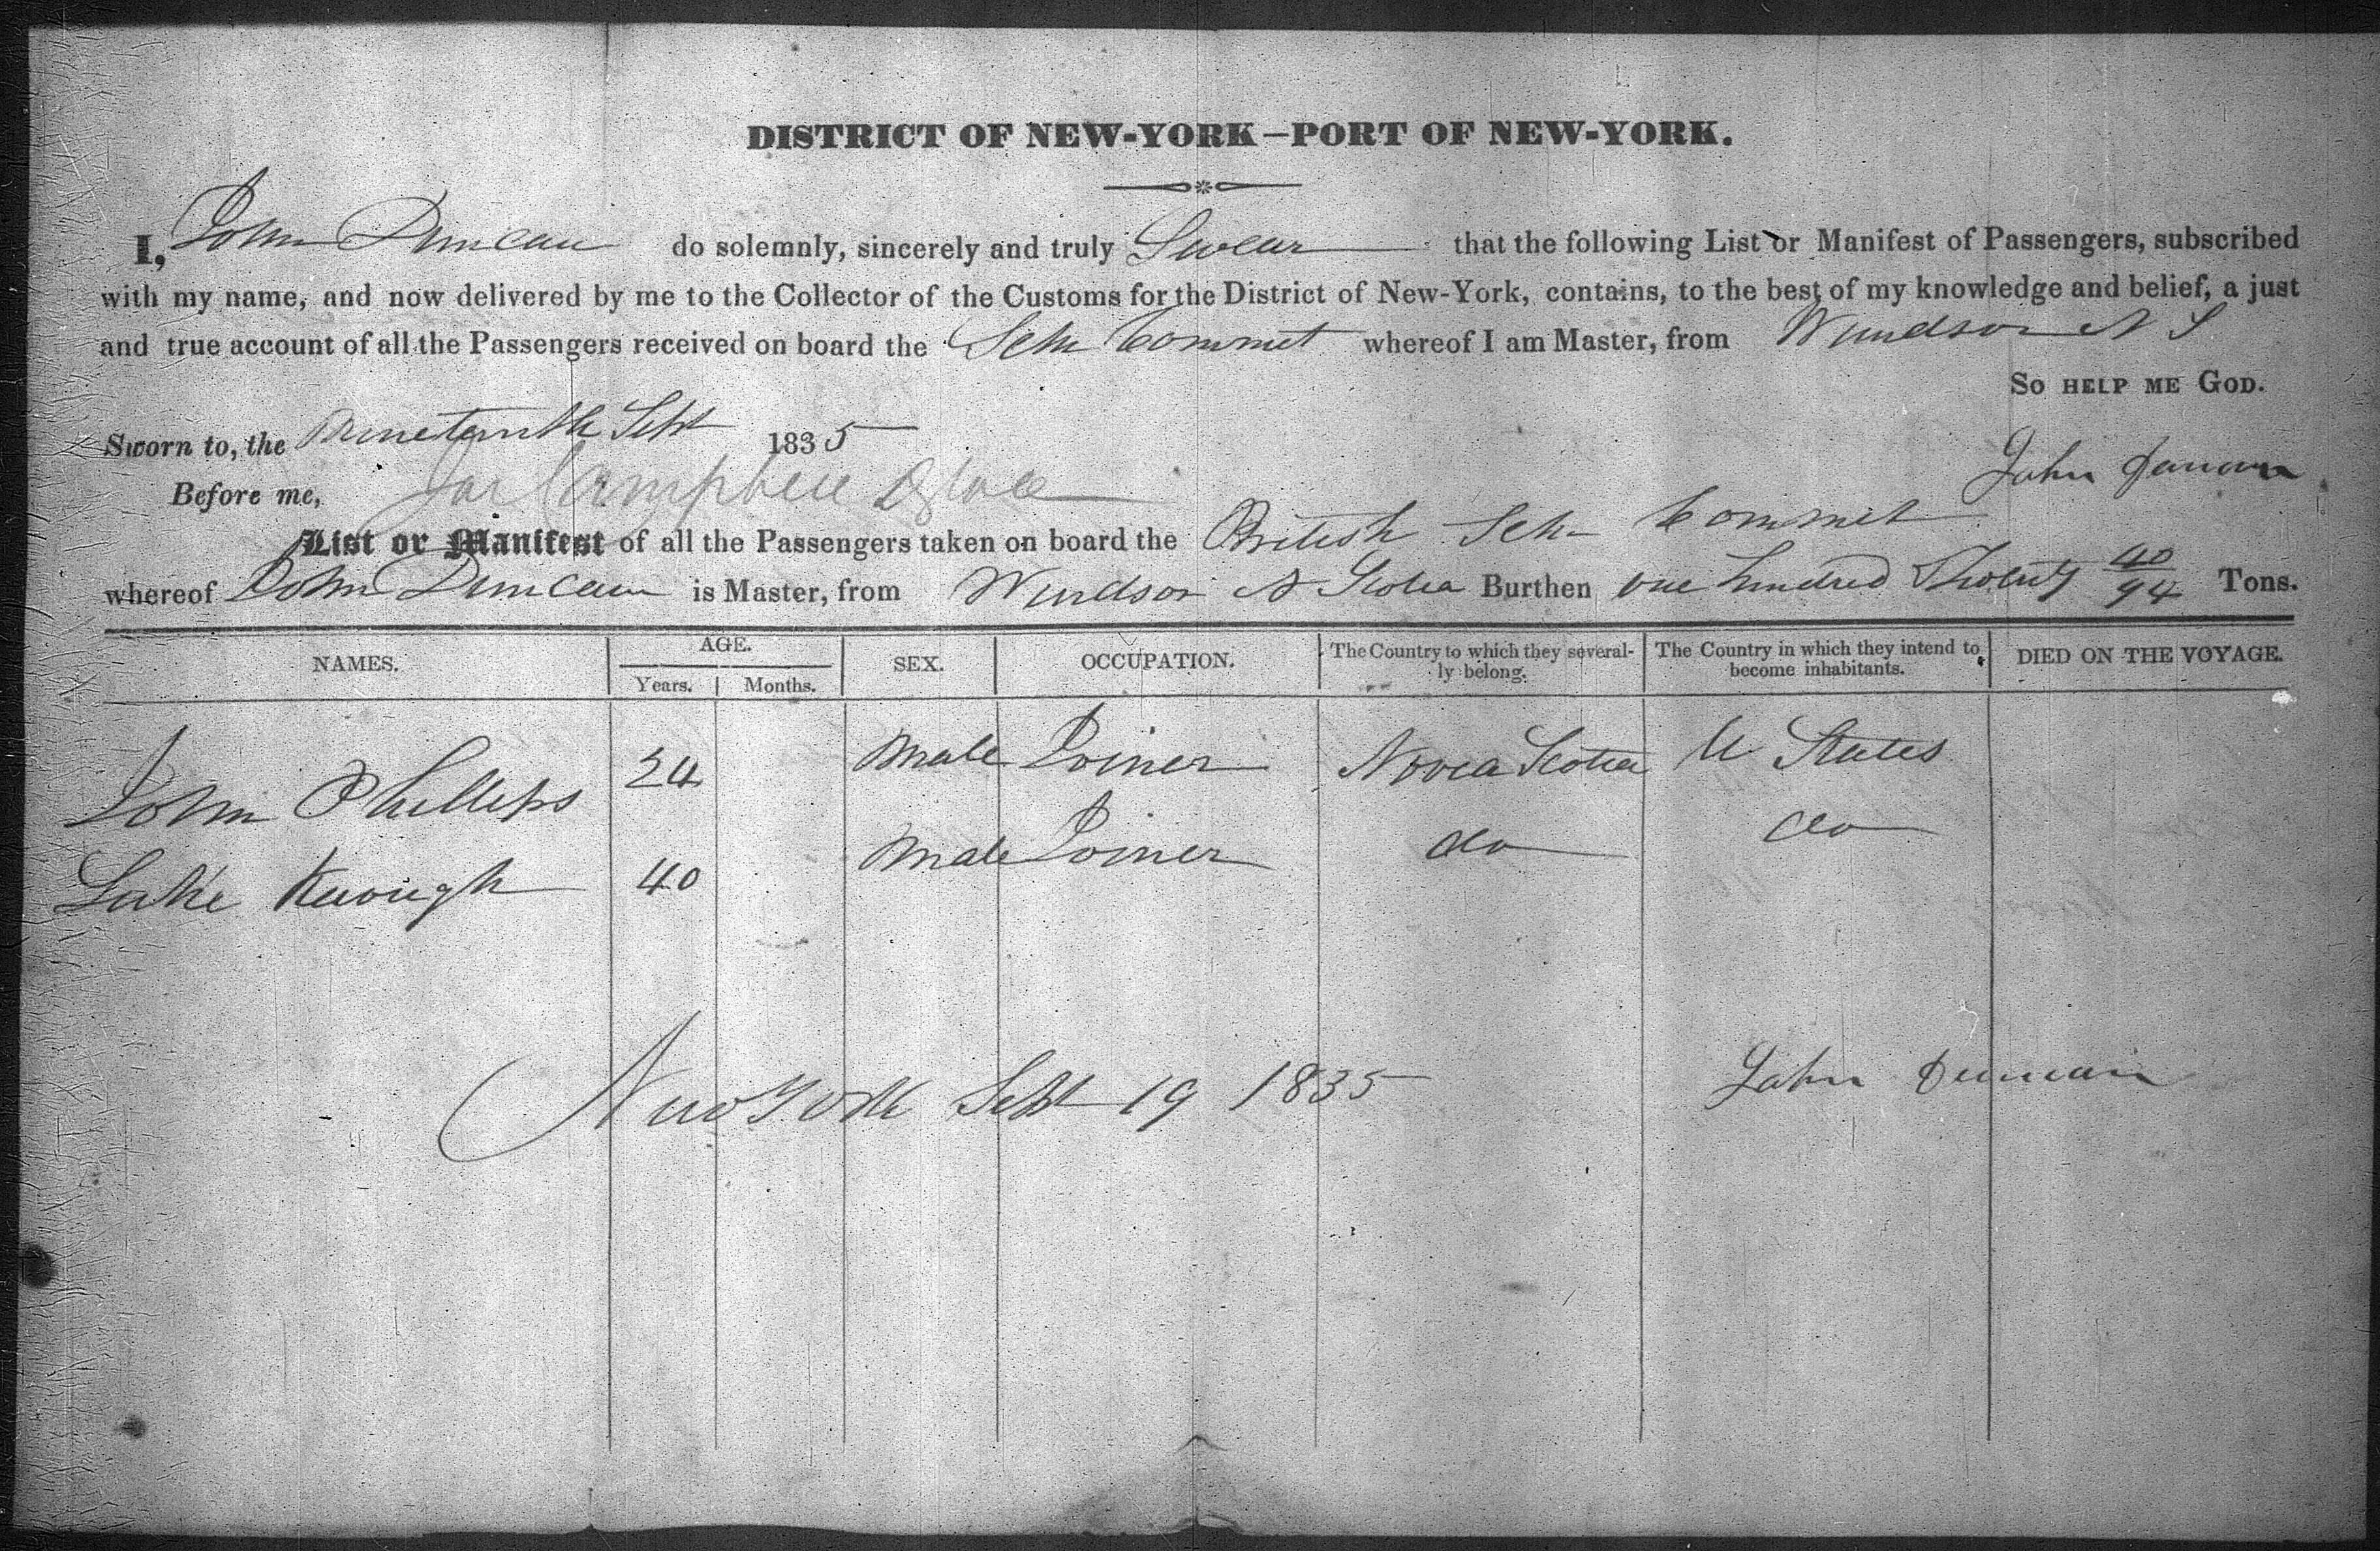 DISTRICT OF NEW-YORK—PORT OF NEW-YORK.
I, John Duncan do solemnly, sincerely and truly Swear that the following List or Manifest of Passengers, subscribed
with my name, and now delivered by me to the Collector of the Customs for the District of New-York, contains, to the best of my knowledge and belief, a just
and true account of all the Passengers received on board the Schr Commet whereof I am Master, from Windsor N S
SO HELP ME GOD.
Sworn to, the Nineteenth Sept 1835
John Duncan
Before me, Jas Campbell
List or Manifest of all the Passengers taken on board the British Schr Commet
whereof John Duncan is Master, from Windsor N Scotia Burthen one hundred Twenty 40/94 Tons.
NAMES. AGE. SEX. OCCUPATION. The Country to which they several- The Country in which they intend to DIED ON THE VOYAGE.
Years. Months. ly belong. become inhabitants.
John Phillips 24 Male Joiner Nova Scotia U States
Luke Keough 40 Male Joiner do do
New York Sept 19 1835 John Duncan